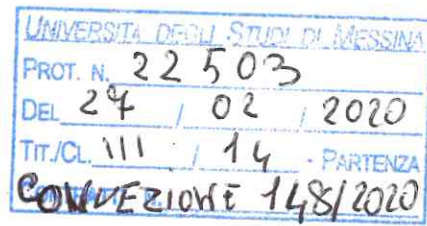 UNIVERSITÀ DEGLI STUDI DI MESSINA
PROT. N. 22503
DEL 27 / 02 / 2020
TIT./CL. III / 14 - PARTENZA
CONVEZIONE 148/2020